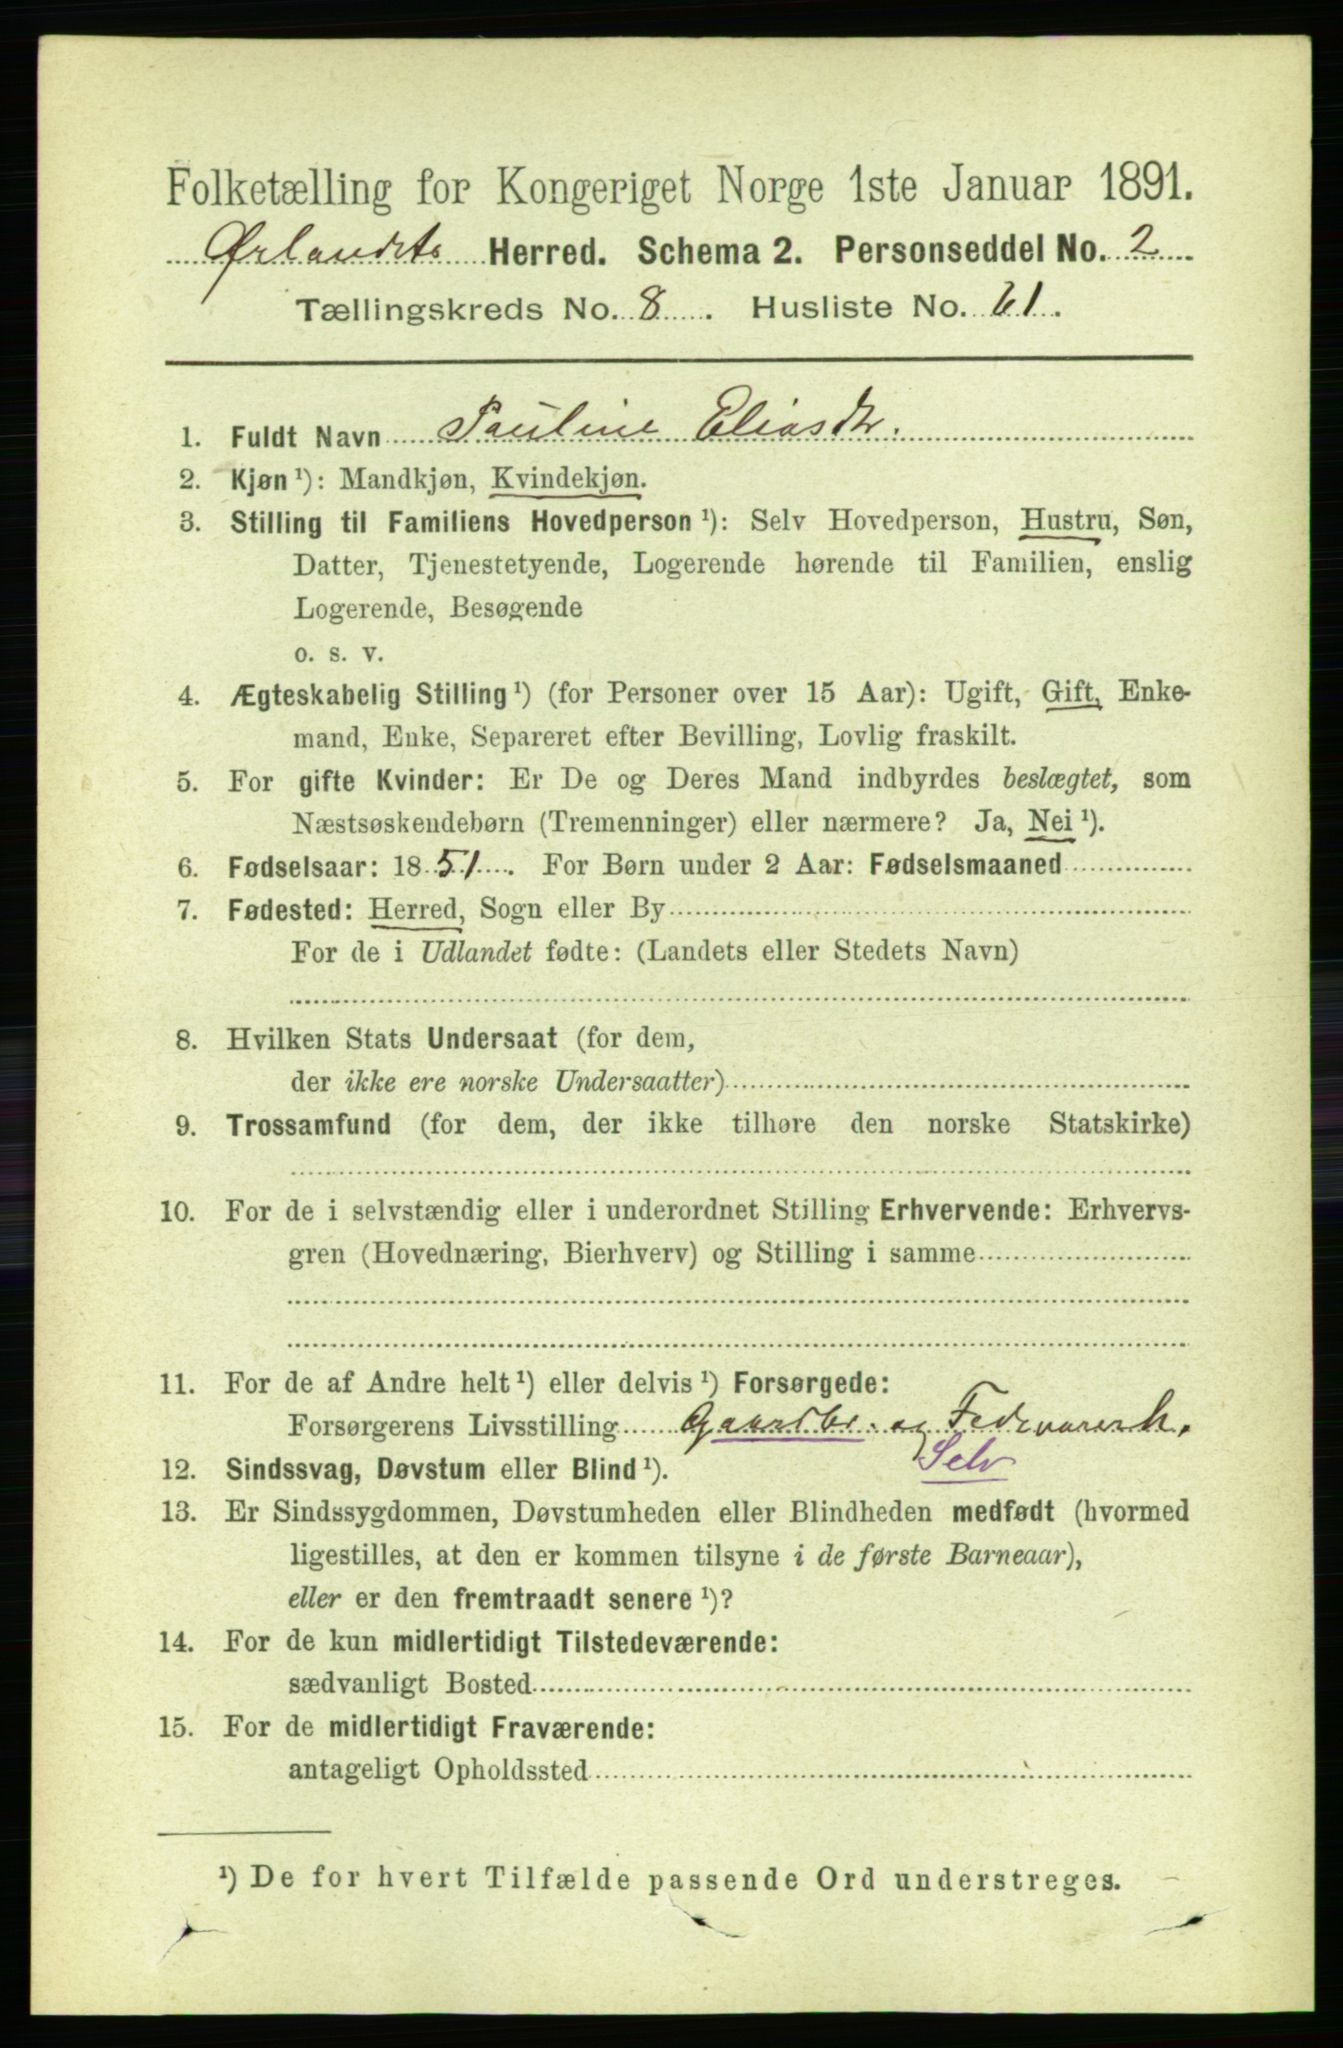 Folketælling for Kongeriget Norge 1ste Januar 1891.
Ørlandets Herred. Schema 2. Personseddel No. 2
Tællingskreds No. 8. Husliste No. 61.
1. Fuldt Navn Pauline Eliasdtr.
2. Kjøn ¹): Mandkjøn, Kvindekjøn.
3. Stilling til Familiens Hovedperson ¹): Selv Hovedperson, Hustru, Søn,
Datter, Tjenestetyende, Logerende hørende til Familien, enslig
Logerende, Besøgende
o. s. v.
4. Ægteskabelig Stilling ¹) (for Personer over 15 Aar): Ugift, Gift, Enke-
mand, Enke, Separeret efter Bevilling, Lovlig fraskilt.
5. For gifte Kvinder: Er De og Deres Mand indbyrdes beslægtet, som
Næstsøskendebørn (Tremenninger) eller nærmere? Ja, Nei ¹).
6. Fødselsaar: 1851. For Børn under 2 Aar: Fødselsmaaned
7. Fødested: Herred, Sogn eller By
For de i Udlandet fødte: (Landets eller Stedets Navn)
8. Hvilken Stats Undersaat (for dem,
der ikke ere norske Undersaatter)
9. Trossamfund (for dem, der ikke tilhøre den norske Statskirke)
10. For de i selvstændig eller i underordnet Stilling Erhvervende: Erhvervs-
gren (Hovednæring, Bierhverv) og Stilling i samme
11. For de af Andre helt ¹) eller delvis ¹) Forsørgede:
Forsørgerens Livsstilling Gaardbr. og Fedevareh.
Selv
12. Sindssvag, Døvstum eller Blind ¹).
13. Er Sindssygdommen, Døvstumheden eller Blindheden medfødt (hvormed
ligestilles, at den er kommen tilsyne i de første Barneaar),
eller er den fremtraadt senere ¹)?
14. For de kun midlertidigt Tilstedeværende:
sædvanligt Bosted
15. For de midlertidigt Fraværende:
antageligt Opholdssted
¹) De for hvert Tilfælde passende Ord understreges.